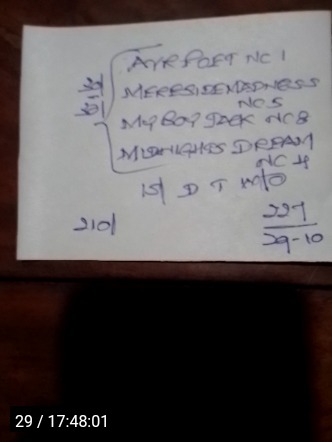 AYR POET NC 1
MERESIDEMADNESS
NC 5
MY BOY JACK NC 8
MIDNIGHTS DREAM
NC 4
15/ D T W/O
210/
227
29-10
29 / 17:48:01